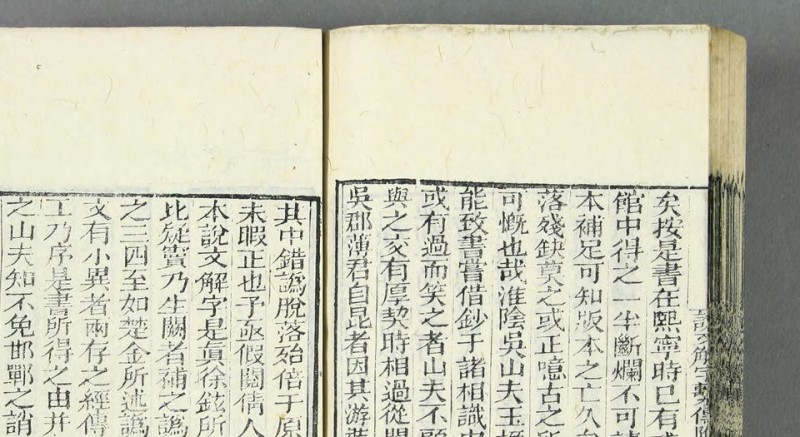 矣按是書在熙寧時已有
館中得之一半斷爛不可
本補足可知版本之亡久
落殘缺莫之或正噫古之所
可慨也哉淮陰吳山夫玉
能致書嘗借鈔于諸相識
或有過而笑之者山夫不
與之交有厚契時相過從
吳郡薄君自昆者因其游
其中錯譌脫落殆倍于原
未暇正也予亟假閱倩人
本說文解字是眞徐鉉所
比疑竇乃生闕者補之譌
之三四至如楚金所述譌
文有小異者兩存之經傳
工乃序是書所得之由并
之山夫知不免邯鄲之誚